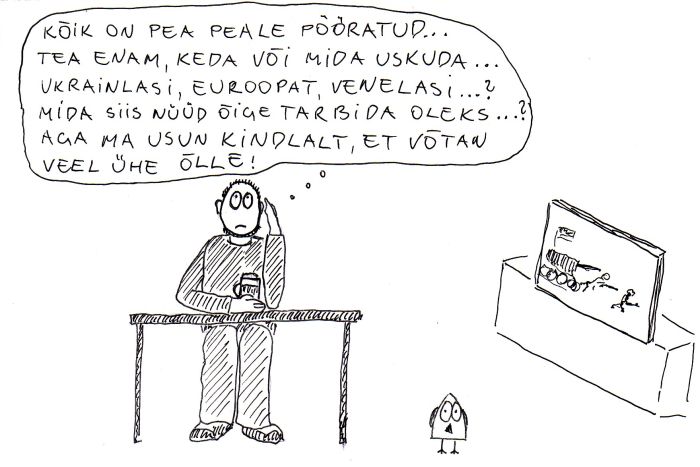 KÕIK ON PEA PEALE PÖÖRATUD...
TEA ENAM, KEDA VÕI MIDA USKUDA...
UKRAINLASI, EUROOPAT, VENELASI...?
MIDA SIIS NÜÜD ÕIGE TARBIDA OLEKS...?
AGA MA USUN KINDLALT, ET VÕTAN
VEEL ÜHE ÕLLE!